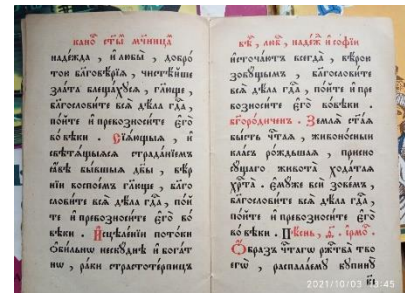 кано́ ст҃ы́ мч҃ницъ
наде́жда , и҆ любы̀ , добро́
тою бл҃гове́рїѧ , чистѣ́йше
зла́та блеща́хусѧ , гл҃юще ,
бл҃гослови́те всѧ̀ дѣла̀ гдⷭ҇а ,
по́йте и҆ превозноси́те є҆го̀
во́ вѣки . Сїѧ́ющыѧ , и҆
свѣтѧ́щыѧсѧ страда́нїемъ
сла́вѣ бы́вшыѧ двы̀ , вѣ́р
нїи воспои́мъ гл҃юще , бл҃го
слови́те всѧ̀ дѣла̀ гдⷭ҇а , по́й
те и҆ превозноси́те є҆го̀ во́
вѣки . И҆сцѣле́нїи пото́ки
ѻ҆би́льнѡ неску́днѣ и҆ бога́т
нѡ , ра́ки страстоте́рпицъ
вѣ́ , люб́ , наде́ж и҆ софі́и
и҆сточа́ютъ всегда̀ , вѣ́рою
зову́щымъ , бл҃гослови́те
всѧ̀ дѣла̀ гдⷭ҇а , по́йте и҆ пре
возноси́те є҆го̀ во́вѣки .
бг҃оро́диченъ . Землѧ̀ ст҃а́ѧ
бы́сть чт҃аѧ , живоно́сныи
кла́съ ро́ждьшаѧ , при́сно
су́щаго живота̀ хода́таѧ
хрⷭ҇та̀ . є҆му́же всѝ зове́мъ ,
бл҃гослови́те всѧ̀ дѣла̀ гдⷭ҇а ,
по́йте и҆ превозноси́те є҆го̀
во́ вѣки . Пѣ́снь , ѳ҃ . і҆рмо́ .
Ѻ҆́бразъ чт҃агѡ ржⷭ҇тва̀ тво
егѡ̀ , распала́ему купинꙋ̀
2021/10/03 10:45